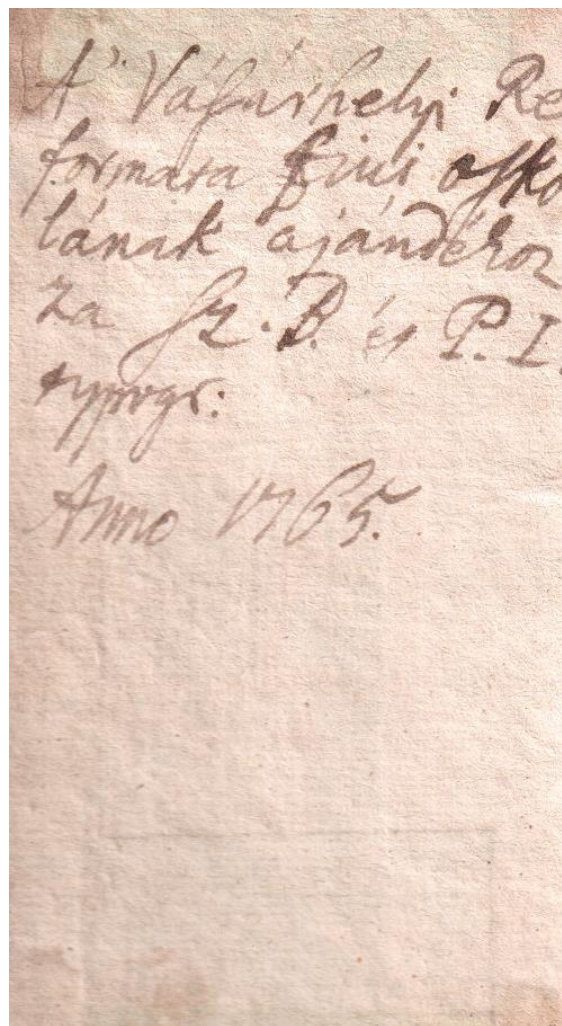 A' Váſárhelyi Re
formata fiúi oſko
lának ajándékoz
za Sz. B. és P. I.
typogr:
Anno 1765.